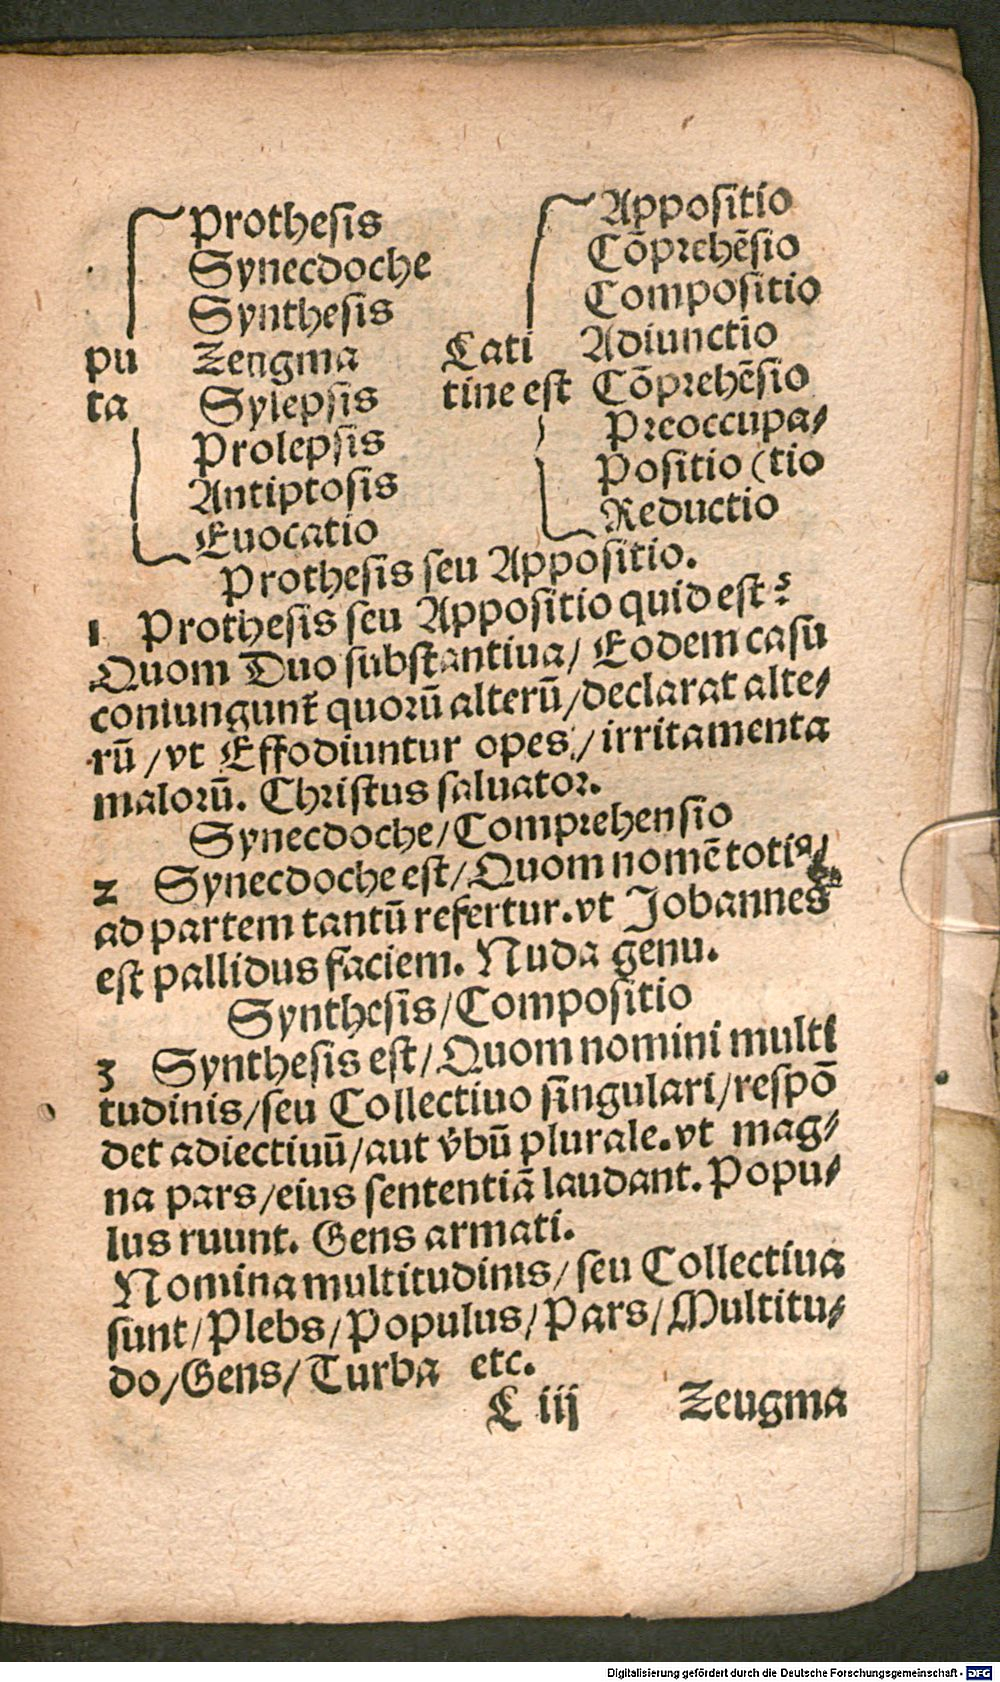 Prothesis
Synecdoche
Synthesis
pu Zengma
ta Sylepsis
Prolepsis
Antiptosis
Euocatio
Appositio
Cōprehēsio
Compositio
Lati Adiunctio
tine est Cōprehēsio
Preoccupa⸗
Positio (tio
Reductio
Prothesis seu Appositio.
1 Prothesis seu Appositio quid est?
Quom Duo substantiua/ Eodem casu
coniungunt̃ quorū alterū/declarat alte⸗
rū/vt Effodiuntur opes/irritamenta
malorū. Christus saluator.
Synecdoche/Comprehensio
2 Synecdoche est/Quom nomē totiꝰ/
ad partem tantū refertur.vt Johannes
est pallidus faciem. Nuda genu.
Synthesis/Compositio
3 Synthesis est/Quom nomini multi
tudinis/seu Collectiuo singulari/respō
det adiectiuū/aut v̄bū plurale.vt mag⸗
na pars/eius sententiā laudant. Popu⸗
lus ruunt. Gens armati.
Nomina multitudinis/seu Collectiua
sunt/Plebs/Populus/Pars/Multitu⸗
do/Gens/Turba etc.
C iij Zeugma
Digitalisierung gefördert durch die Deutsche Forschungsgemeinschaft - DFG